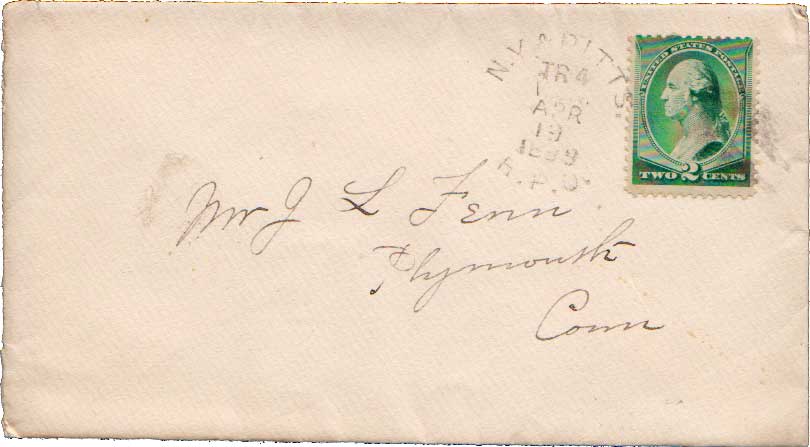 N.Y. & PITTS.
TR 4
APR
19
R.P.O.
UNITED STATES POSTAGE
TWO 2 CENTS
Mr J L Fenn
Plymouth
Conn